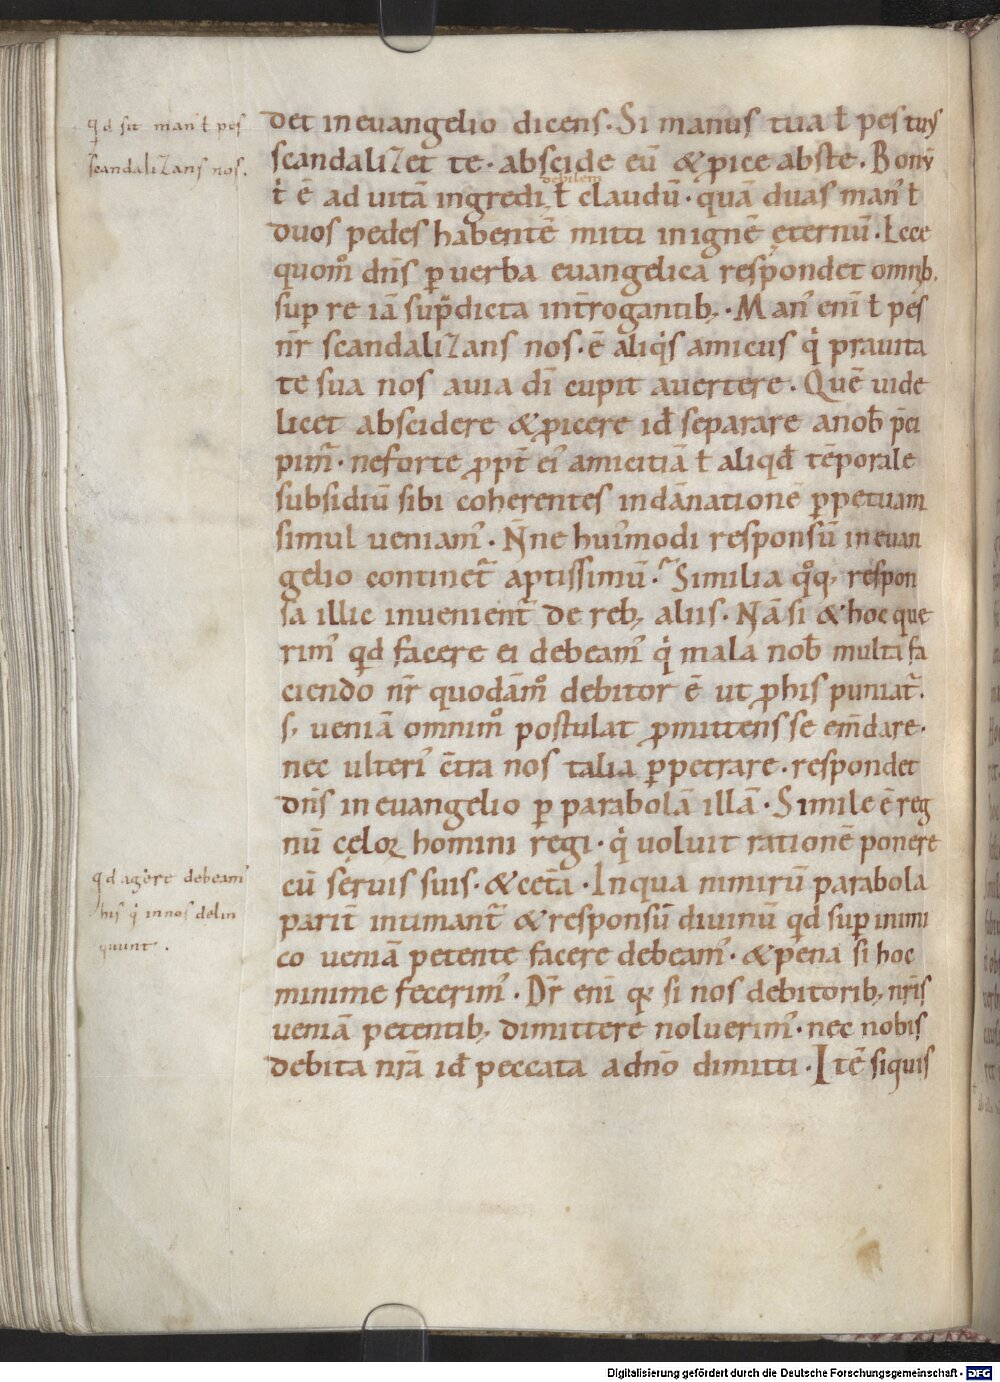 qd sit man' ł pes
scandalizans nos.
det in euangelio dicens. Si manus tua ł pes tuus
scandalizet te. abscide eū & ꝓice abs te. Bonū
t' ē ad uitā ingredi debilem ł claudū. quā duas man' ł
duos pedes habentē mitti in ignē ęternū. Ecce
quom̊ dn̄s ꝑ uerba euangelica respondet omnib;
sup̄ re iā sup̄dicta int̄rogantib;. Man' eni ̄ ł pes
nr̄ scandalizans nos. ē aliq's amicus q' prauita
te sua nos a uia di ̄ cupit auertere. Quē uide
licet abscidere & ꝓicere id ̄ separare a nob̄ p̄ci
pim̄. ne forte ꝓpt̄ ei' amicitiā ł aliqd̄ tēporale
subsidiū sibi coherentes in dānationē ꝑpetuam
simul ueniam'. N̄ne hui'modi responsū in euan
gelio continet̄ aptissimū. Similia qͦq; respon
sa illic inuenient̄ de reb; aliis. Nā si & hoc que
rim' qd facere ei debeam' q' mala nob̄ multa fa
ciendo nr̄ quodām̊ debitor ē ut ꝓ his puniat̄.
s; ueniā omnim̊ postulat ꝓmittens se em̄dare.
nec ulteri' c̄tra nos talia ꝑpetrare. respondet
dn̄s in euangelio ꝑ parabolā illā. Simile ē reg
nū cęloꝝ homini regi. q' uoluit rationē ponere
cū seruis suis. & cet̄a. In qua nimirū parabola
qd agere debeam'
his q' in nos delin
quunt.
parit̄ intimant̄ & responsū diuinū qd sup̄ inimi
co ueniā petente facere debeam'. & pena si hoc
minime fecerim'. Dr̄ eni ̄ qꝛ si nos debitorib; nr̄is
ueniā petentib; dimittere noluerim'. nec nobis
debita nr̄a id ̄ peccata a dn̄o dimitti. Itē siquis
Digitalisierung gefördert durch die Deutsche Forschungsgemeinschaft - DFG